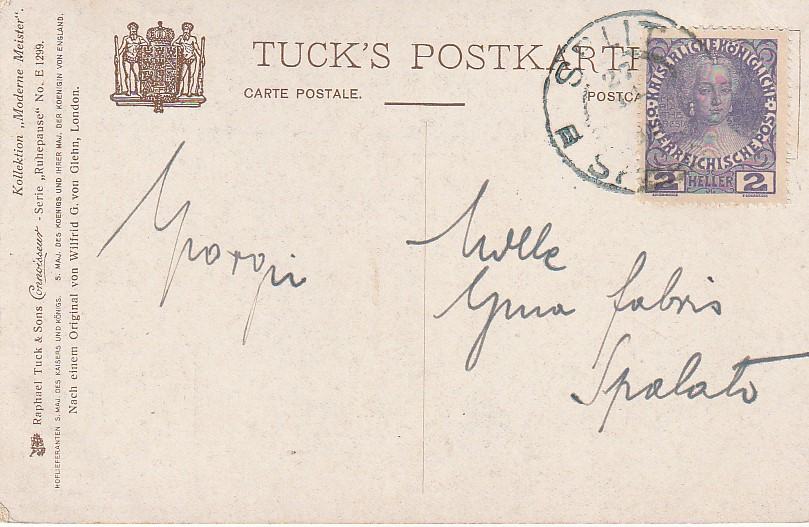 TUCK'S POSTKARTE
CARTE POSTALE.
POSTCA
SPLIT
27
KAISERLICHE KÖNIGLICHE
ÖSTERREICHISCHE POST
2 HELLER 2
Kollektion „Moderne Meister".
Raphael Tuck & Sons Connoisseur - Serie „Ruhepause" No. E 1299.
HOFLIEFERANTEN S. MAJ. DES KAISERS UND KÖNIGS. S. MAJ. DES KOENIGS UND IHRER MAJ. DER KOENIGIN VON ENGLAND.
Nach einem Original von Wilfrid G. von Glehn, London.
Mlle
Gina Fabris
Spalato